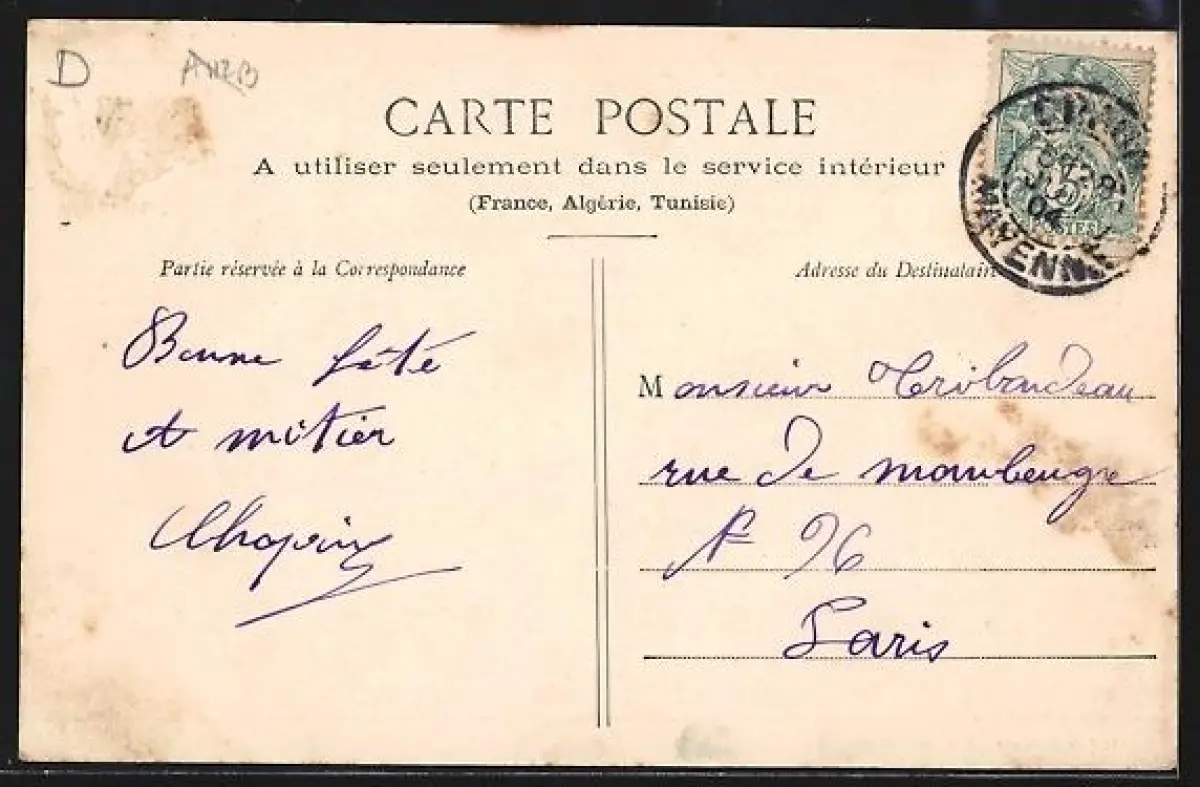 D
CARTE POSTALE
A utiliser seulement dans le service intérieur
(France, Algérie, Tunisie)
Partie réservée à la Correspondance
Adresse du Destinataire
POSTES
04
MAYENNE
Bonne fête
et mitier
Chopin
Monsieur Tribondeau
rue de Maubeuge
N° 96
Paris